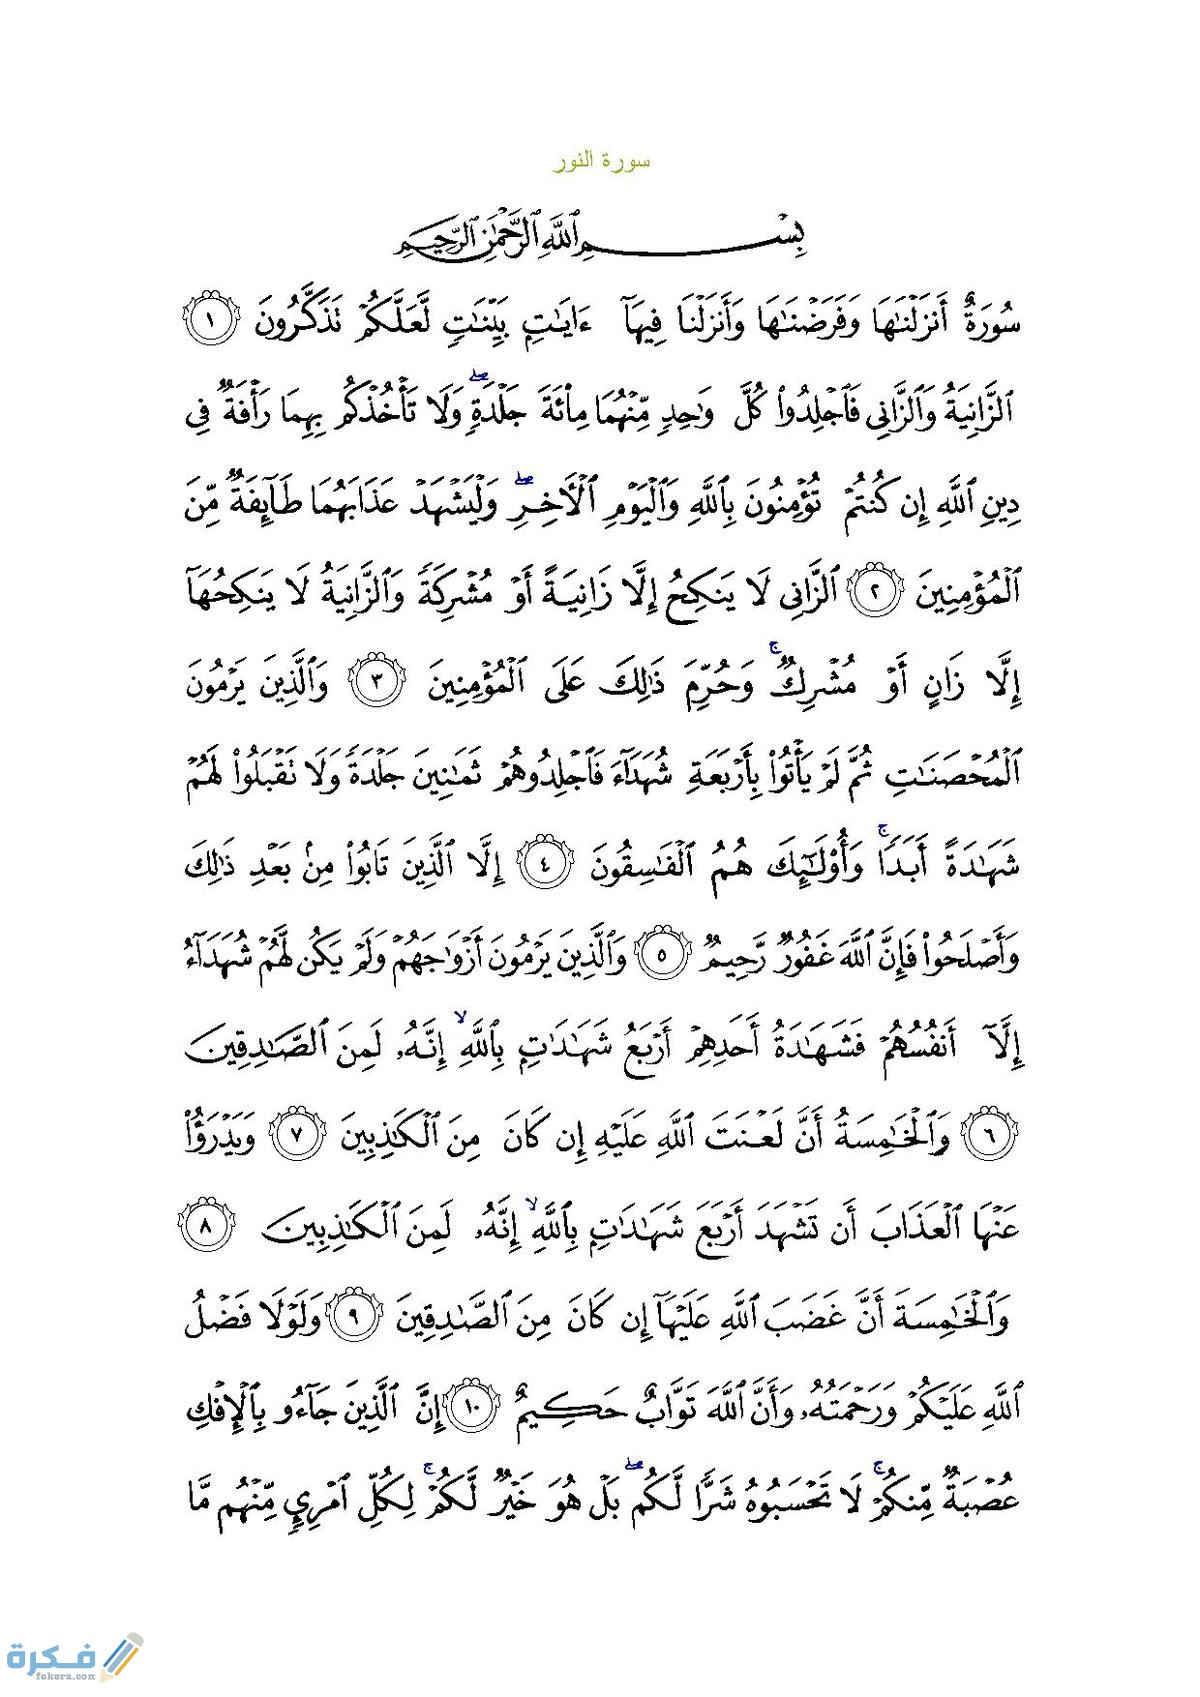 سورة النور
بِسْمِ ٱللَّهِ ٱلرَّحْمَٰنِ ٱلرَّحِيمِ
سُورَةٌ أَنزَلْنَٰهَا وَفَرَضْنَٰهَا وَأَنزَلْنَا فِيهَآ ءَايَٰتٍۭ بَيِّنَٰتٍ لَّعَلَّكُمْ تَذَكَّرُونَ ١
ٱلزَّانِيَةُ وَٱلزَّانِى فَٱجْلِدُوا۟ كُلَّ وَٰحِدٍ مِّنْهُمَا مِا۟ئَةَ جَلْدَةٍ ۖ وَلَا تَأْخُذْكُم بِهِمَا رَأْفَةٌ فِى
دِينِ ٱللَّهِ إِن كُنتُمْ تُؤْمِنُونَ بِٱللَّهِ وَٱلْيَوْمِ ٱلْـَٔاخِرِ ۖ وَلْيَشْهَدْ عَذَابَهُمَا طَآئِفَةٌ مِّنَ
ٱلْمُؤْمِنِينَ ٢ ٱلزَّانِى لَا يَنكِحُ إِلَّا زَانِيَةً أَوْ مُشْرِكَةً وَٱلزَّانِيَةُ لَا يَنكِحُهَآ
إِلَّا زَانٍ أَوْ مُشْرِكٌ ۚ وَحُرِّمَ ذَٰلِكَ عَلَى ٱلْمُؤْمِنِينَ ٣ وَٱلَّذِينَ يَرْمُونَ
ٱلْمُحْصَنَٰتِ ثُمَّ لَمْ يَأْتُوا۟ بِأَرْبَعَةِ شُهَدَآءَ فَٱجْلِدُوهُمْ ثَمَٰنِينَ جَلْدَةً وَلَا تَقْبَلُوا۟ لَهُمْ
شَهَٰدَةً أَبَدًا ۚ وَأُو۟لَٰٓئِكَ هُمُ ٱلْفَٰسِقُونَ ٤ إِلَّا ٱلَّذِينَ تَابُوا۟ مِنۢ بَعْدِ ذَٰلِكَ
وَأَصْلَحُوا۟ فَإِنَّ ٱللَّهَ غَفُورٌ رَّحِيمٌ ٥ وَٱلَّذِينَ يَرْمُونَ أَزْوَٰجَهُمْ وَلَمْ يَكُن لَّهُمْ شُهَدَآءُ
إِلَّآ أَنفُسُهُمْ فَشَهَٰدَةُ أَحَدِهِمْ أَرْبَعُ شَهَٰدَٰتٍۭ بِٱللَّهِ ۙ إِنَّهُۥ لَمِنَ ٱلصَّٰدِقِينَ
٦ وَٱلْخَٰمِسَةُ أَنَّ لَعْنَتَ ٱللَّهِ عَلَيْهِ إِن كَانَ مِنَ ٱلْكَٰذِبِينَ ٧ وَيَدْرَؤُا۟
عَنْهَا ٱلْعَذَابَ أَن تَشْهَدَ أَرْبَعَ شَهَٰدَٰتٍۭ بِٱللَّهِ ۙ إِنَّهُۥ لَمِنَ ٱلْكَٰذِبِينَ ٨
وَٱلْخَٰمِسَةَ أَنَّ غَضَبَ ٱللَّهِ عَلَيْهَآ إِن كَانَ مِنَ ٱلصَّٰدِقِينَ ٩ وَلَوْلَا فَضْلُ
ٱللَّهِ عَلَيْكُمْ وَرَحْمَتُهُۥ وَأَنَّ ٱللَّهَ تَوَّابٌ حَكِيمٌ ١٠ إِنَّ ٱلَّذِينَ جَآءُو بِٱلْإِفْكِ
عُصْبَةٌ مِّنكُمْ ۚ لَا تَحْسَبُوهُ شَرًّا لَّكُم ۖ بَلْ هُوَ خَيْرٌ لَّكُمْ ۚ لِكُلِّ ٱمْرِئٍ مِّنْهُم مَّا
فكرة
fokera.com